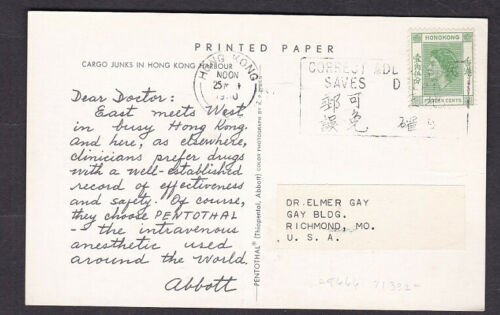 PRINTED PAPER
CARGO JUNKS IN HONG KONG HARBOUR
HONG KONG
NOON
25
1960
CORRECT ADD
SAVES D
郵可
誤免 確
HONGKONG
香港
FIFTEEN CENTS
Dear Doctor:
East meets West
in busy Hong Kong
and here, as elsewhere,
clinicians prefer drugs
with a well-established
record of effectiveness
and safety. Of course,
they choose PENTOTHAL
— the intravenous
anesthetic used
around the World.
Abbott
PENTOTHAL® (Thiopental, Abbott) COLOR PHOTOGRAPH BY
DR. ELMER GAY
GAY BLDG.
RICHMOND, MO.
U. S. A.